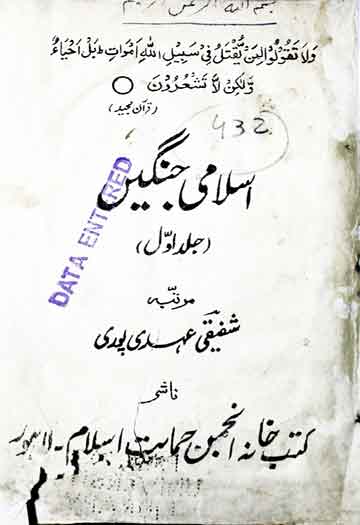 بسم اللہ الرحمن الرحیم
وَلَا تَقُوْلُوْا لِمَنْ يُّقْتَلُ فِيْ سَبِيْلِ اللّٰهِ اَمْوَاتٌ ؕ بَلْ اَحْيَآءٌ
وَّلٰكِنْ لَّا تَشْعُرُوْنَ ○
(قرآن مجید)
432
اسلامی جنگیں
DATA ENTERED
(جلد اوّل)
مرتبہ
شفیقی عہدی پوری
ناشر
کتب خانہ انجمن حمایت اسلام۔ لاہور